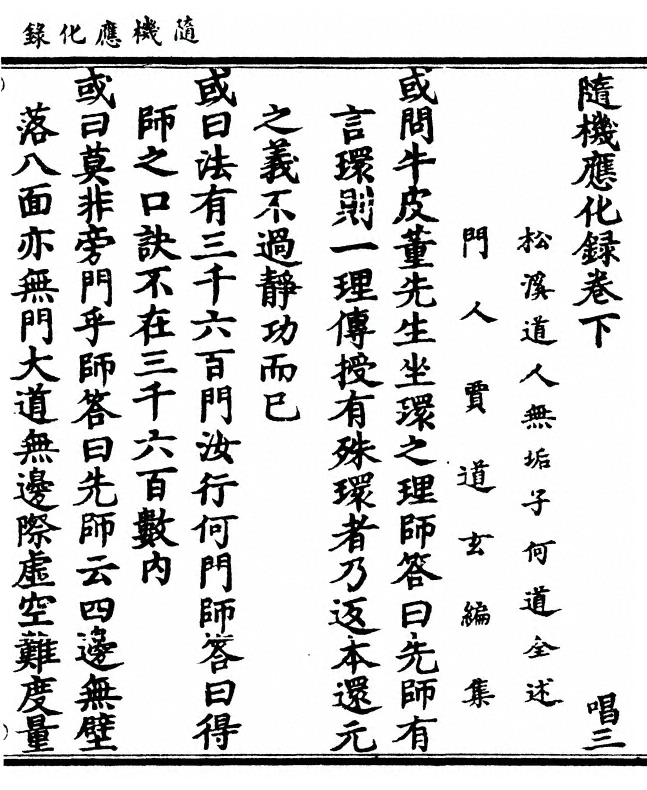 隨機應化錄
隨機應化録卷下 唱三
松溪道人無垢子何道全述
門人賈道玄編集
或問牛皮董先生坐環之理師答曰先師有
言環則一理傳授有殊環者乃返本還元
之義不過靜功而已
或曰法有三千六百門汝行何門師答曰得
師之口訣不在三千六百數內
或曰莫非旁門乎師答曰先師云四邊無壁
落八面亦無門大道無邊際虛空難度量